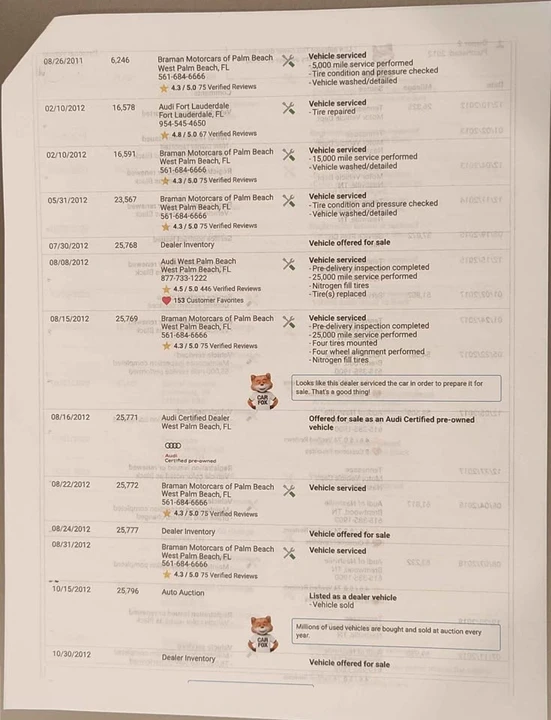 08/26/2011 6,246 Braman Motorcars of Palm Beach Vehicle serviced
West Palm Beach, FL - 5,000 mile service performed
561-684-6666 - Tire condition and pressure checked
- Vehicle washed/detailed
4.3 / 5.0 75 Verified Reviews
02/10/2012 16,578 Audi Fort Lauderdale Vehicle serviced
Fort Lauderdale, FL - Tire repaired
954-545-4650
4.8 / 5.0 67 Verified Reviews
02/10/2012 16,591 Braman Motorcars of Palm Beach Vehicle serviced
West Palm Beach, FL - 15,000 mile service performed
561-684-6666 - Vehicle washed/detailed
4.3 / 5.0 75 Verified Reviews
05/31/2012 23,567 Braman Motorcars of Palm Beach Vehicle serviced
West Palm Beach, FL - Tire condition and pressure checked
561-684-6666 - Vehicle washed/detailed
4.3 / 5.0 75 Verified Reviews
07/30/2012 25,768 Dealer Inventory Vehicle offered for sale
08/08/2012 Audi West Palm Beach Vehicle serviced
West Palm Beach, FL - Pre-delivery inspection completed
877-733-1222 - 25,000 mile service performed
- Nitrogen fill tires
4.5 / 5.0 446 Verified Reviews - Tire(s) replaced
153 Customer Favorites
08/15/2012 25,769 Braman Motorcars of Palm Beach Vehicle serviced
West Palm Beach, FL - Pre-delivery inspection completed
561-684-6666 - 25,000 mile service performed
4.3 / 5.0 75 Verified Reviews - Four tires mounted
- Four wheel alignment performed
- Nitrogen fill tires
CAR FOX
Looks like this dealer serviced the car in order to prepare it for
sale. That's a good thing!
08/16/2012 25,771 Audi Certified Dealer Offered for sale as an Audi Certified pre-owned
West Palm Beach, FL vehicle
Audi
Certified pre-owned
08/22/2012 25,772 Braman Motorcars of Palm Beach Vehicle serviced
West Palm Beach, FL
561-684-6666
4.3 / 5.0 75 Verified Reviews
08/24/2012 25,777 Dealer Inventory Vehicle offered for sale
08/31/2012 Braman Motorcars of Palm Beach Vehicle serviced
West Palm Beach, FL
561-684-6666
4.3 / 5.0 75 Verified Reviews
10/15/2012 25,796 Auto Auction Listed as a dealer vehicle
- Vehicle sold
CAR FOX
Millions of used vehicles are bought and sold at auction every
year.
10/30/2012 Dealer Inventory Vehicle offered for sale